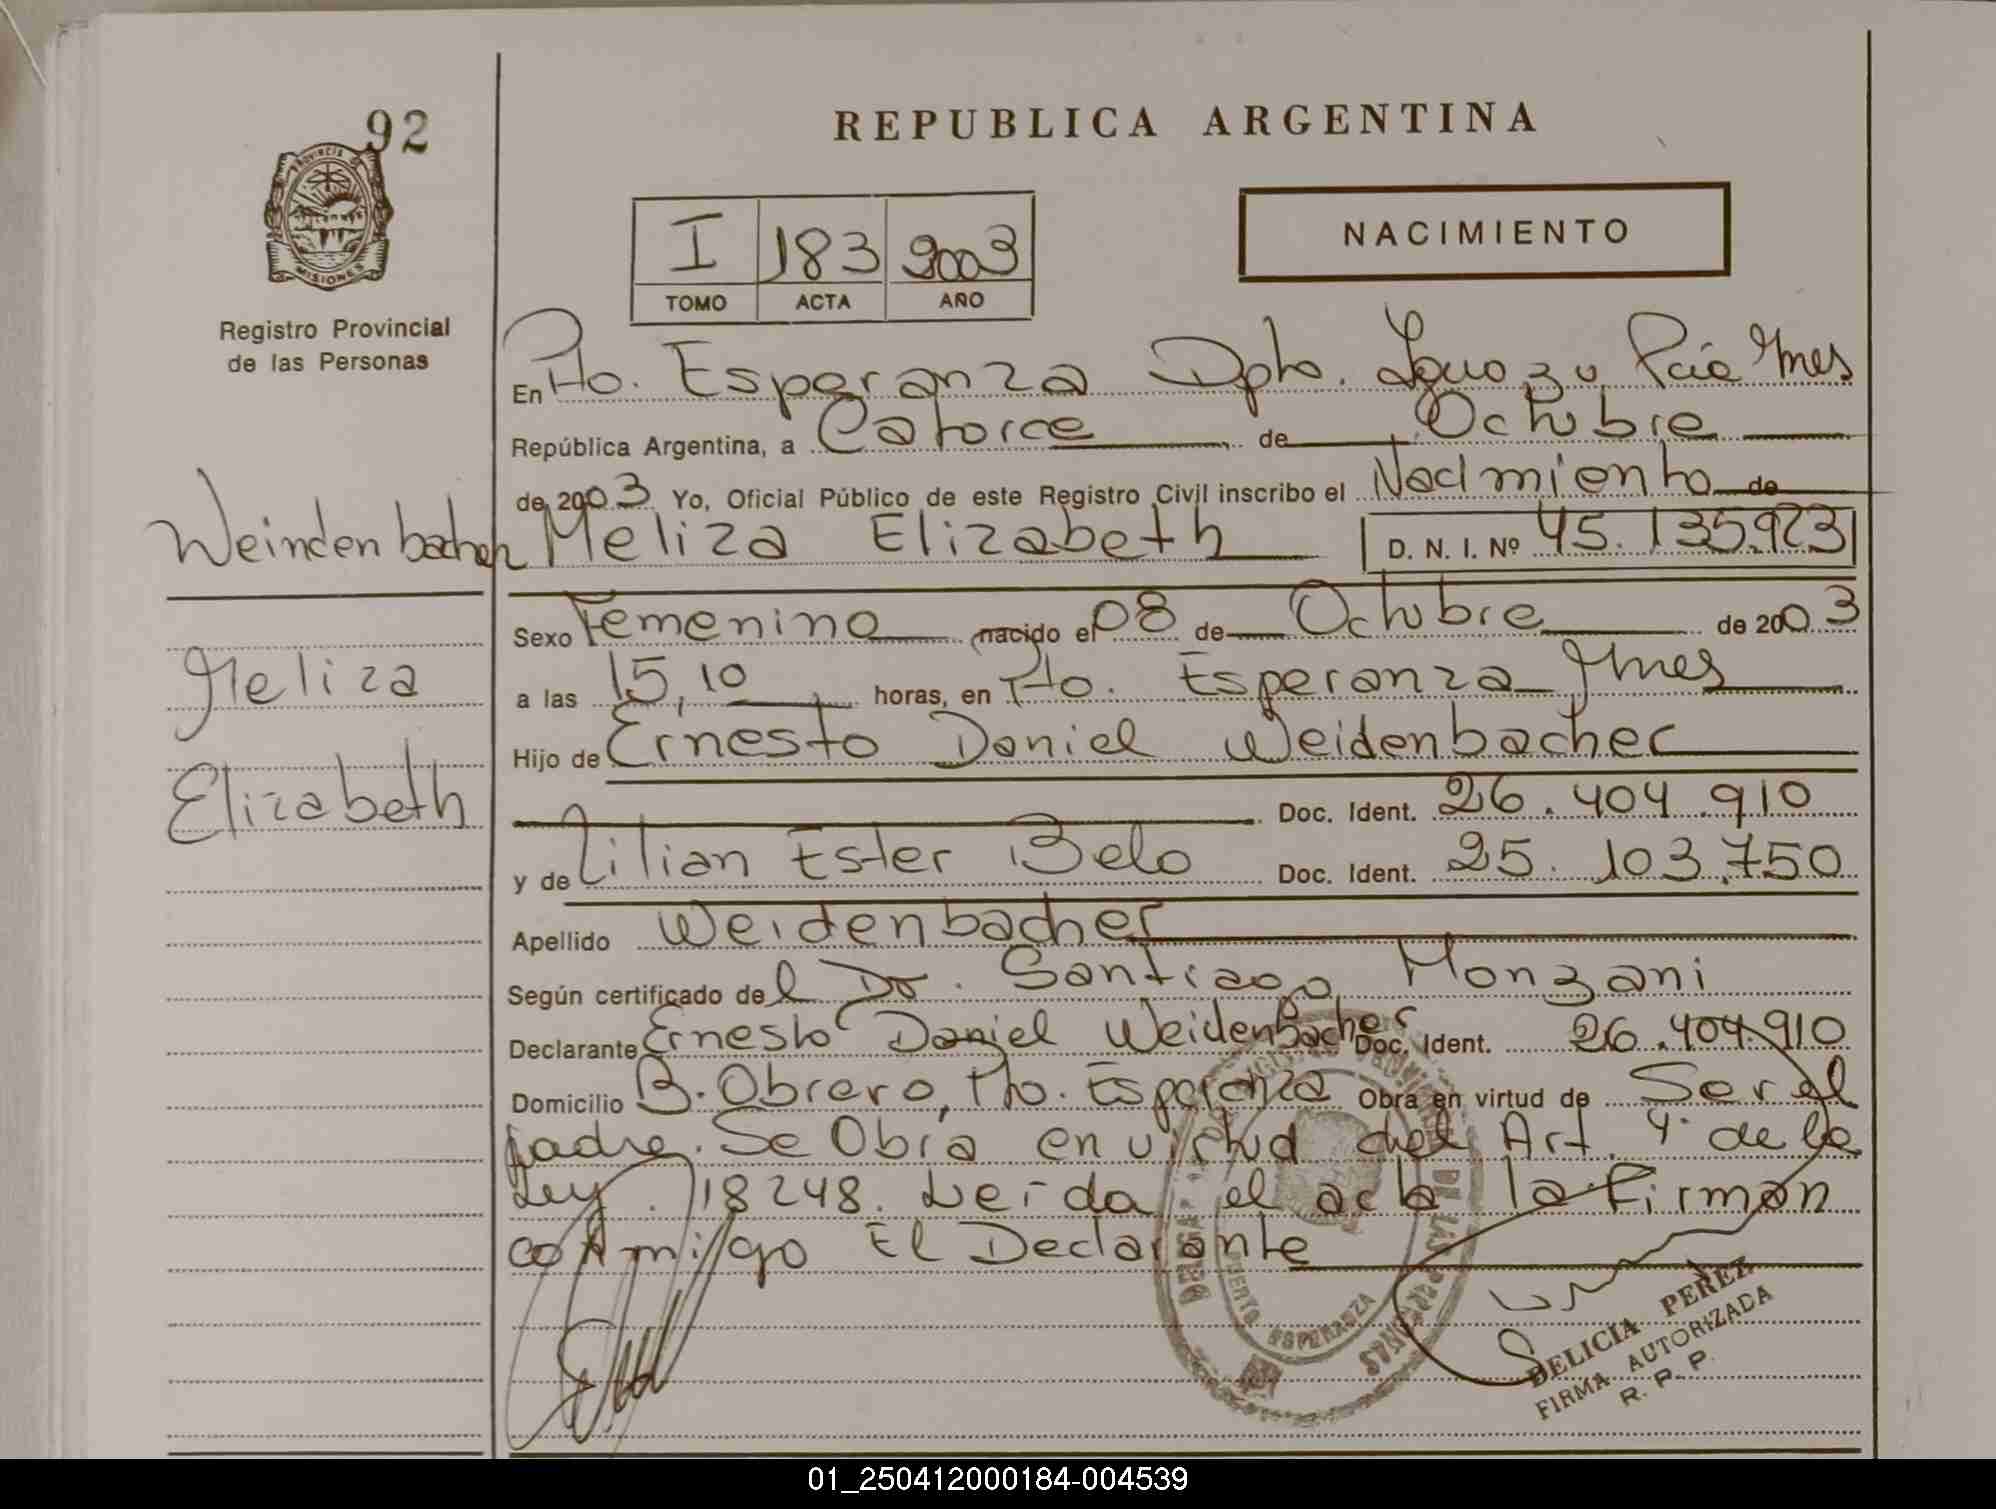 92
PROVINCIA DE
MISIONES
Registro Provincial
de las Personas
Weindenbacher
Meliza
Elizabeth
REPUBLICA ARGENTINA
I 183 2003
TOMO ACTA AÑO
NACIMIENTO
En Pto. Esperanza Dpto. Iguazu Pcia Mnes
República Argentina, a Catorce de Octubre
de 2003 Yo, Oficial Público de este Registro Civil inscribo el Nacimiento de
Meliza Elizabeth D. N. I. Nº 45.135.923
Sexo Femenino nacido el 08 de Octubre de 2003
a las 15,10 horas, en Pto. Esperanza Mnes
Hijo de Ernesto Daniel Weidenbacher
Doc. Ident. 26.404.910
y de Lilian Ester Belo Doc. Ident. 25.103.750
Apellido Weidenbacher
Según certificado del Dr. Santiago Monzani
Declarante Ernesto Daniel Weidenbacher Doc. Ident. 26.404.910
Domicilio B. Obrero, Pto. Esperanza Obra en virtud de Ser el
padre. Se Obra en virtud del Art. 4º de la
Ley. 18248. Leida el acta la Firman
conmigo El Declarante
PUERTO ESPERANZA
DE LAS PERSONAS
DELICIA PEREZ
FIRMA AUTORIZADA
R. P. P.
01_250412000184-004539